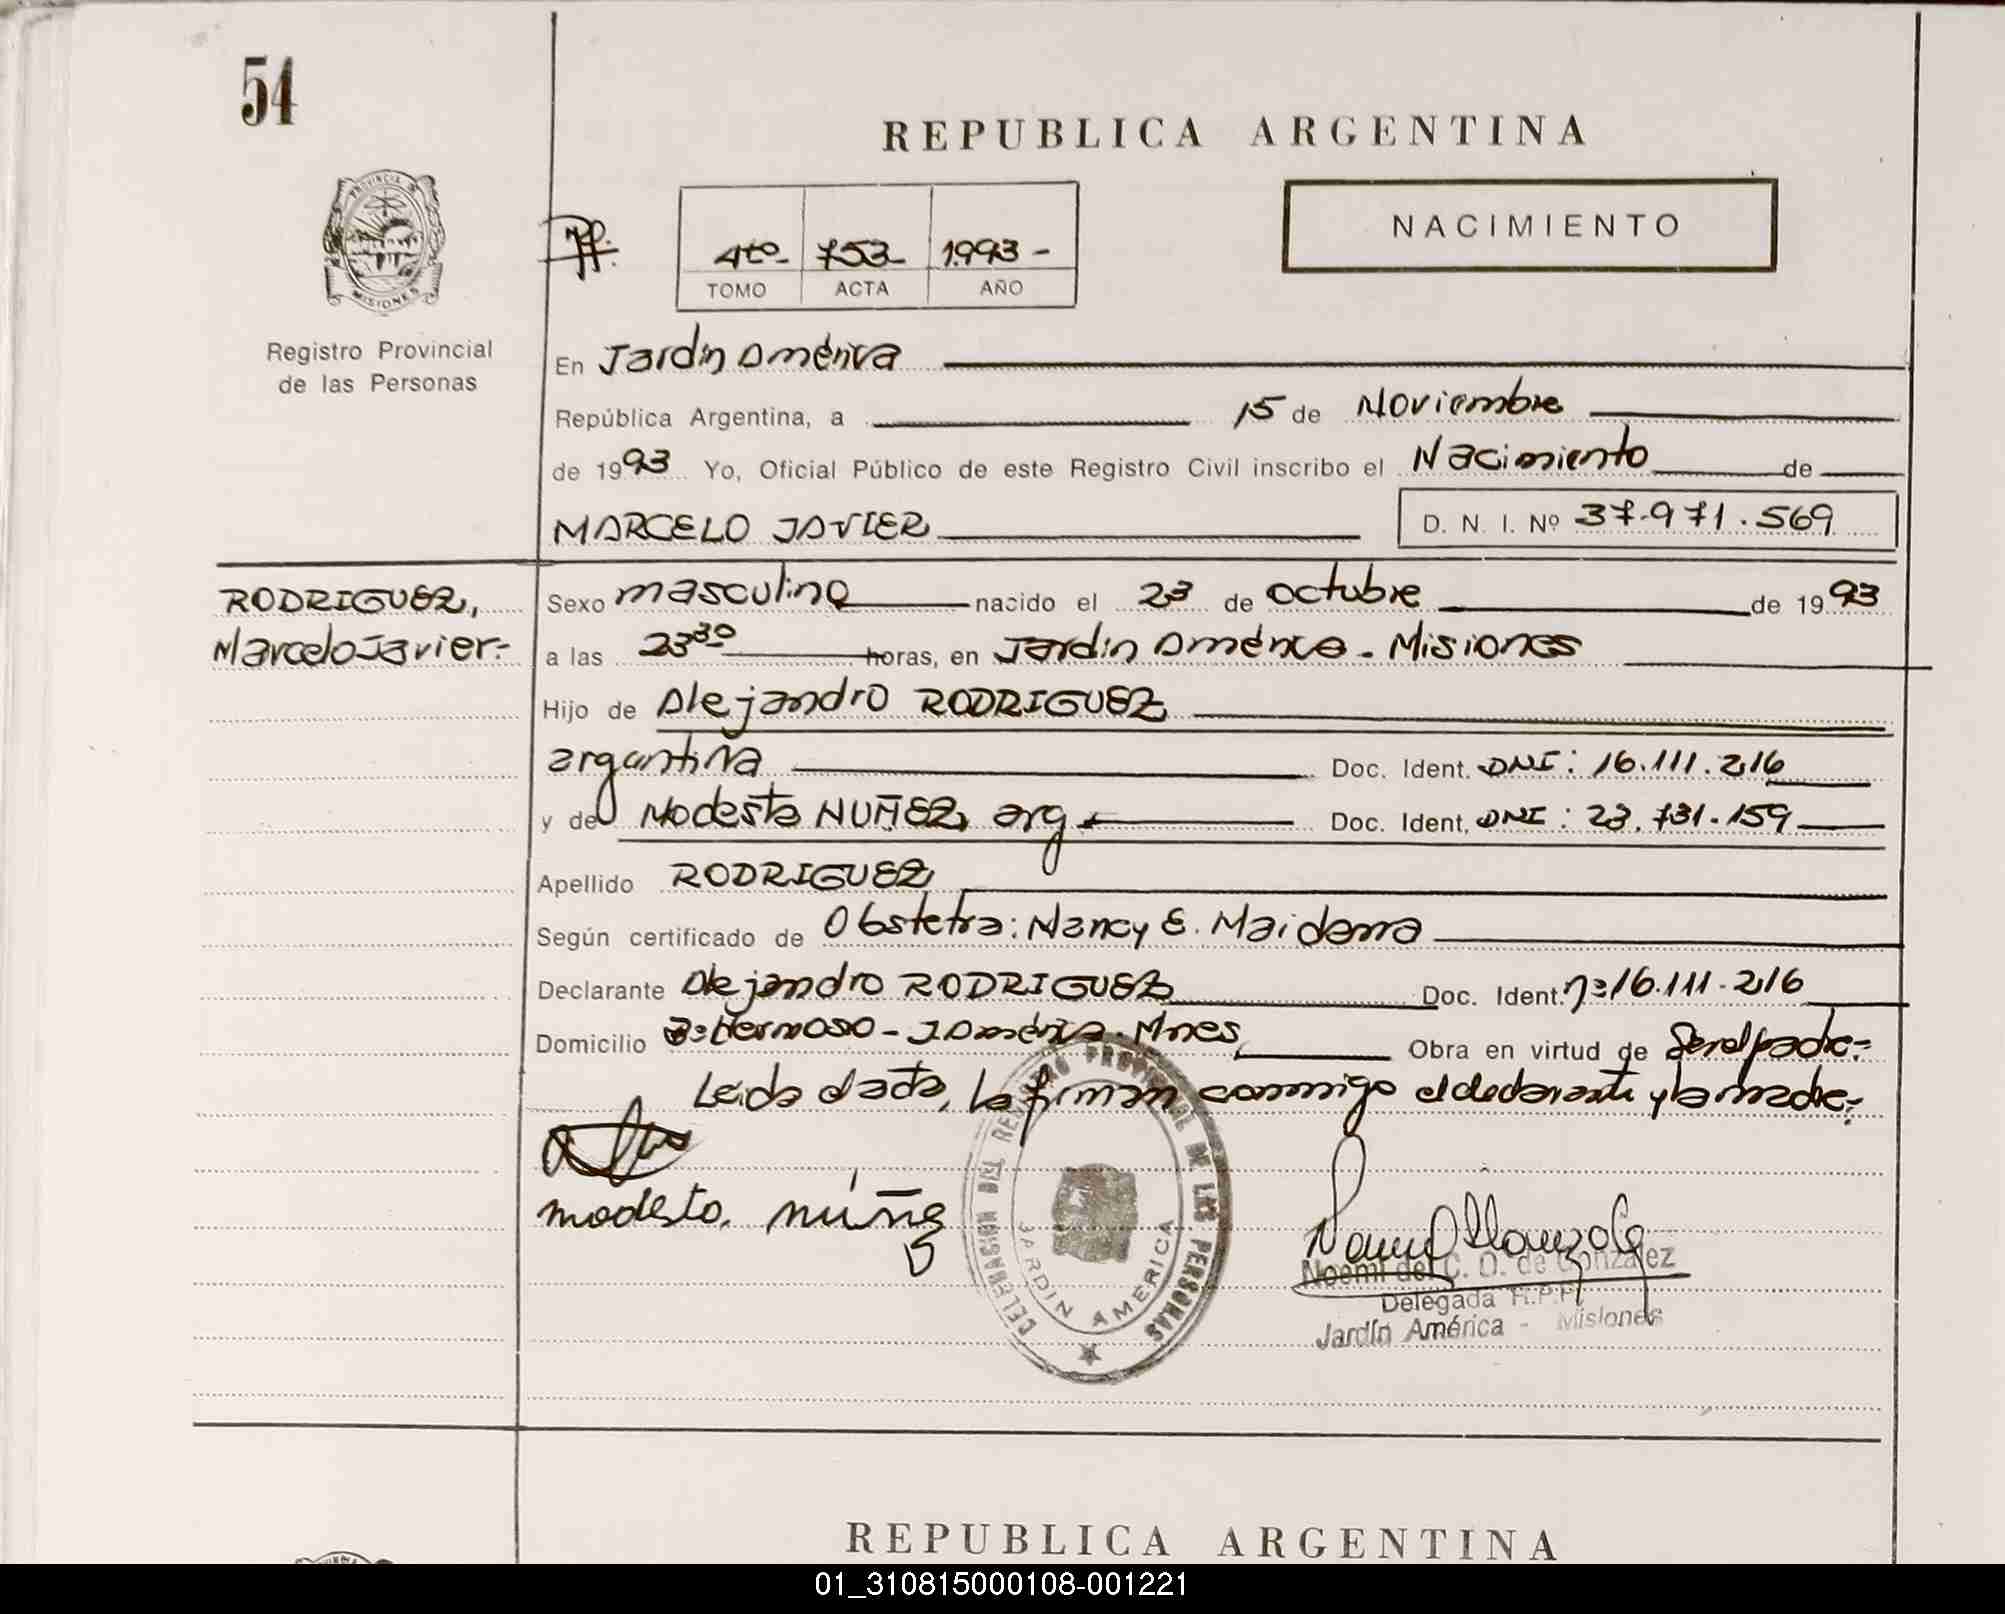 54
REPUBLICA ARGENTINA
PROVINCIA DE
MISIONES
Registro Provincial
de las Personas
4to- 753- 1993-
TOMO ACTA AÑO
NACIMIENTO
En Jardín América
República Argentina, a 15 de Noviembre
de 1993 Yo, Oficial Público de este Registro Civil inscribo el Nacimiento de
MARCELO JAVIER D. N. I. Nº 37.971.569
RODRIGUEZ,
Marcelo Javier.-
Sexo masculino nacido el 23 de octubre de 1993
a las 23³⁰ horas, en Jardín América - Misiones
Hijo de Alejandro RODRIGUEZ
argentina Doc. Ident. DNI: 16.111.216
y de Modesta NUÑEZ, arg Doc. Ident. DNI: 23.731.159
Apellido RODRIGUEZ
Según certificado de Obstetra: Nancy E. Maidana
Declarante Alejandro RODRIGUEZ Doc. Ident. nº 16.111.216
Domicilio Bº Hermoso - J América. Mnes Obra en virtud de Ser el padre.-
Leída el acta, la firman conmigo el declarante y la madre.-
modesta, núñez
DELEGACION DEL REGISTRO PROVINCIAL DE LAS PERSONAS
JARDIN AMÉRICA
Noemí del C. O. de González
Delegada R.P.P.
Jardín América - Misiones
REPUBLICA ARGENTINA
01_310815000108-001221